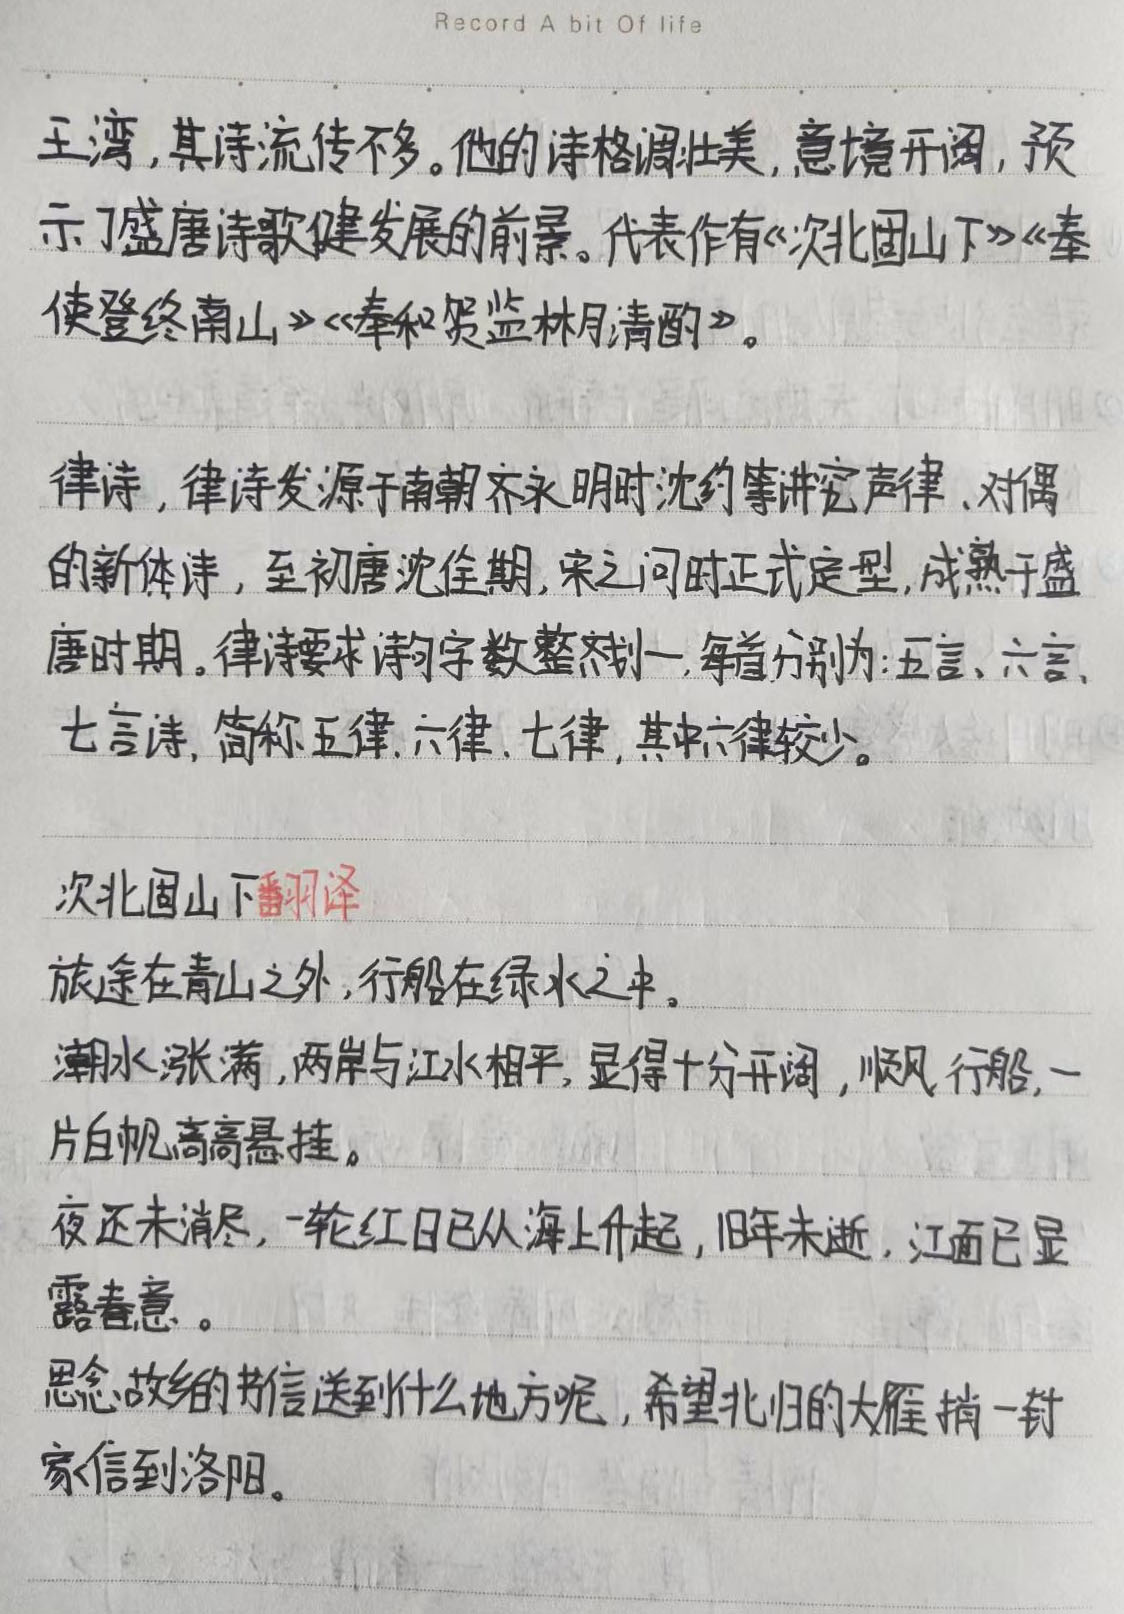 Record A bit Of life
王湾,其诗流传不多。他的诗格调壮美,意境开阔,预
示了盛唐诗歌健发展的前景。代表作有《次北固山下》《奉
使登终南山》《奉和贺监林月清酌》。
律诗,律诗发源于南朝齐永明时沈约等讲究声律、对偶
的新体诗,至初唐沈佺期,宋之问时正式定型,成熟于盛
唐时期。律诗要求诗句字数整齐划一,每首分别为:五言、六言、
七言诗,简称五律、六律、七律,其中六律较少。
次北固山下翻译
旅途在青山之外,行船在绿水之中。
潮水涨满,两岸与江水相平,显得十分开阔,顺风行船,一
片白帆高高悬挂。
夜还未消尽,一轮红日已从海上升起,旧年未逝,江面已显
露春意。
思念故乡的书信送到什么地方呢,希望北归的大雁捎一封
家信到洛阳。